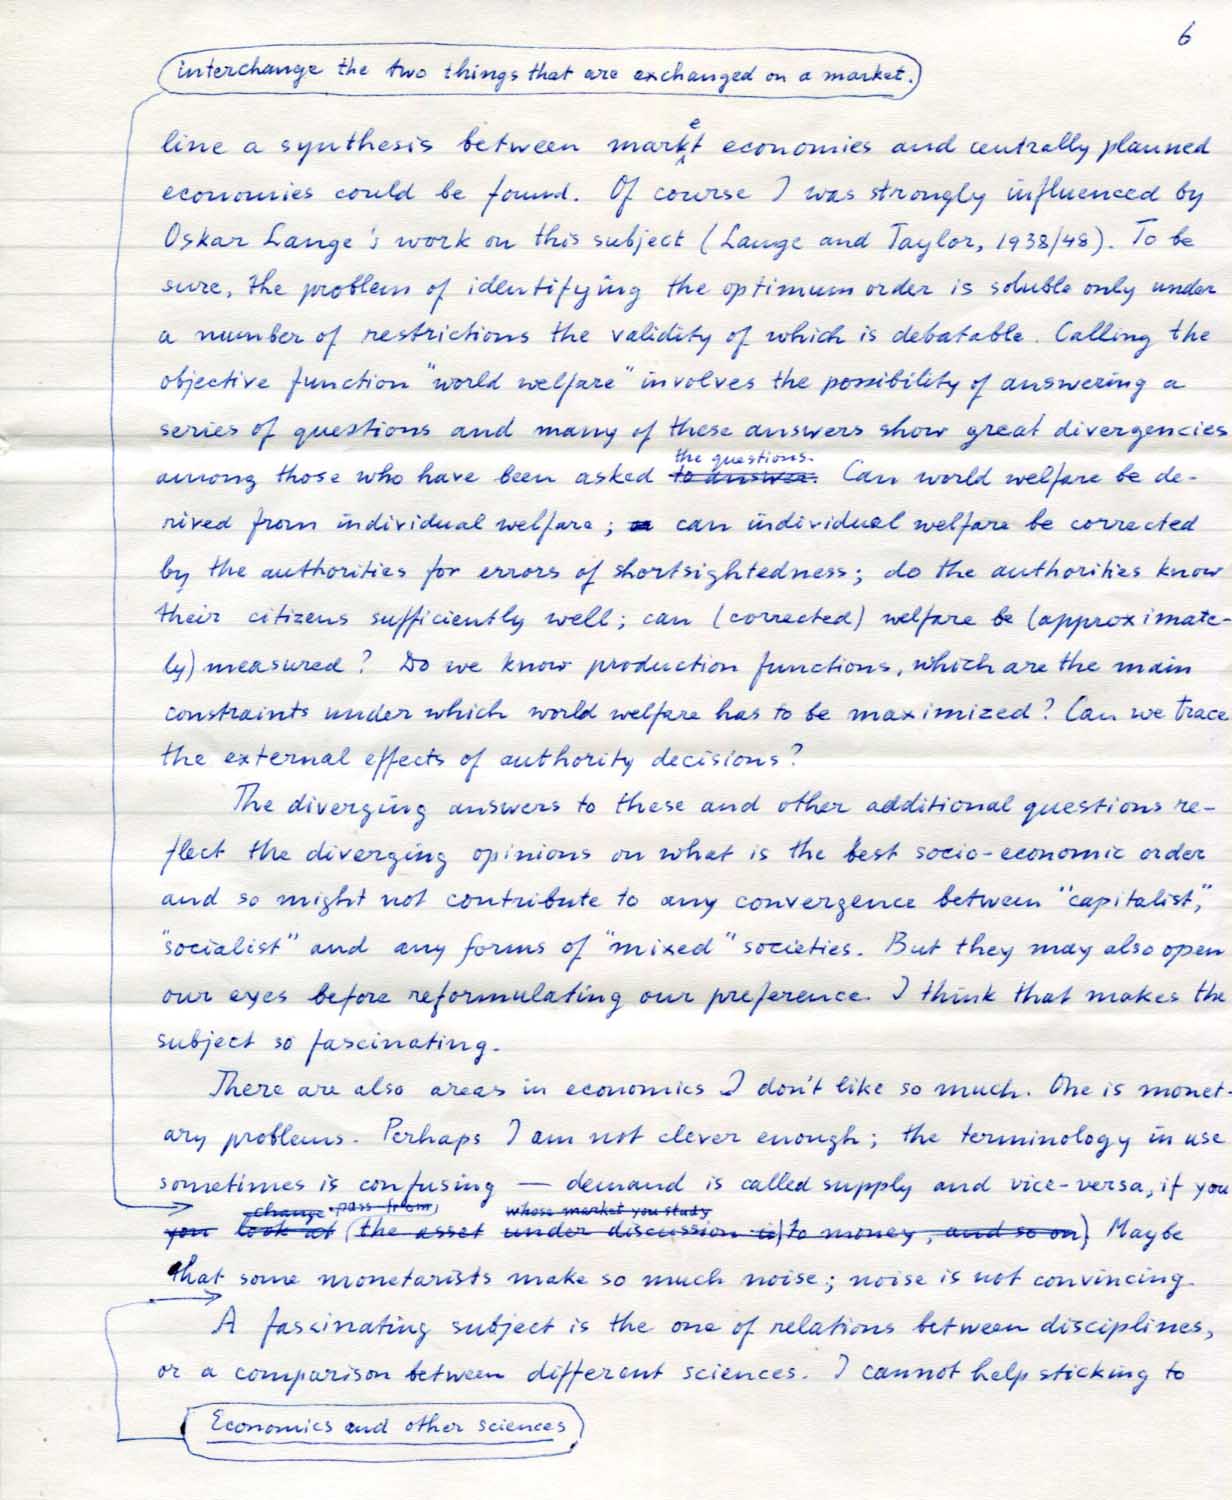 6
interchange the two things that are exchanged on a market.
line a synthesis between market economies and centrally planned
economies could be found. Of course I was strongly influenced by
Oskar Lange's work on this subject (Lange and Taylor, 1938/48). To be
sure, the problem of identifying the optimum order is soluble only under
a number of restrictions the validity of which is debatable. Calling the
objective function "world welfare" involves the possibility of answering a
series of questions and many of these answers show great divergencies
the questions.
among those who have been asked to answer. Can world welfare be de-
rived from individual welfare; can individual welfare be corrected
by the authorities for errors of shortsightedness; do the authorities know
their citizens sufficiently well; can (corrected) welfare be (approximate-
ly) measured? Do we know production functions, which are the main
constraints under which world welfare has to be maximized? Can we trace
the external effects of authority decisions?
The diverging answers to these and other additional questions re-
flect the diverging opinions on what is the best socio-economic order
and so might not contribute to any convergence between "capitalist",
"socialist" and any forms of "mixed" societies. But they may also open
our eyes before reformulating our preference. I think that makes the
subject so fascinating.
There are also areas in economics I don't like so much. One is monet-
ary problems. Perhaps I am not clever enough; the terminology in use
sometimes is confusing — demand is called supply and vice-versa, if you
change pass from, whose market you study
you look at (the asset under discussion is) to money, and so on) Maybe
that some monetarists make so much noise; noise is not convincing.
A fascinating subject is the one of relations between disciplines,
or a comparison between different sciences. I cannot help sticking to
Economics and other sciences